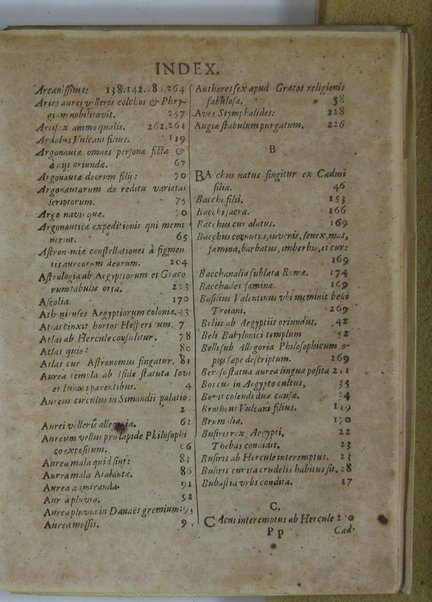 INDEX.
Arcanissima: 138.142.181.264
Aries aurei velleris colchos & Phry-
gum nobilitavit. 257
Artifex animo qualis. 262.263
Ardalus Vulcani filius. 119
Argonautæ omnes persona fictæ &
à diis oriundæ. 67
Argonautæ deorum filij: 70
Argonautarum de reditu varietas
scriptorum. 75
Argo navis quæ. 70
Argonautica expeditionis qui memi-
nerint. 65
Astronomiæ constellationes à figmen-
tis aureorum deorum. 104
Astrologia ab Aegyptiorum et Græco
rum fabulis orta. 223
Ascolia. 170
Athenienses Aegyptiorum colonia. 43
Atlas cinxit hortos Hesperidum. 7
Atlas ab Hercule consulitur. 78
Atlas quis: 80
Atlas cur Astronomus fingatur. 81
Aurea templa ab Iside statuta Iovi
et Iunoni parentibus. 4
Aureus circulus in Simandii palatio:
2
Aurei velleris allegoria. 62
Aureum vellus pro lapide Philosophi
co expositum.
Aurea mala quid sint: 83
Aurea mala Atalantæ. 86
Aurea admiranda. 91
Aurea pluvia. 92
Aurea pluvia in Danaës gremium: 93
Aurea messis. 9
Authores sex apud Græcos religionis
fabulosæ. 58
Aves Stymphalides: 228
Augiæ stabulum purgatum. 226
B
BAcchus natus fingitur ex Cadmi
filia. 46
Bacchi filii. 153
Bacchi sacra. 166
Bacchus cur alatus. 169
Bacchus cornutus, iuvenis, senex, mas,
fœmina, barbatus, imberbis, et cur:
169
Bacchanalia sublata Romæ. 174
Bacchades fœminæ. 169
Basilius Valentinus ubi meminit belli
Troiani. 269
Belus ab Aegyptiis oriundus. 42
Beli Babylonici templum 52
Bellis sub Allegoria Philosophicum o-
pus sæpe descriptum. 269
Beroso statua aurea lingua posita. 211
Bos cur in Aegypto cultus, 35
Boves colendi duæ causæ. 34
Brotheus Vulcani filius. 119
Brumalia. 170
Busiris rex Aegypti, 22
Thebas condidit. 23
Busiris ab Hercule interemptus. 23
Busiris cur ita crudelis habitus sit. 28
Bubastia urbs condita. 17
C.
CAcus interemptus ab Hercule
P p
Cad-